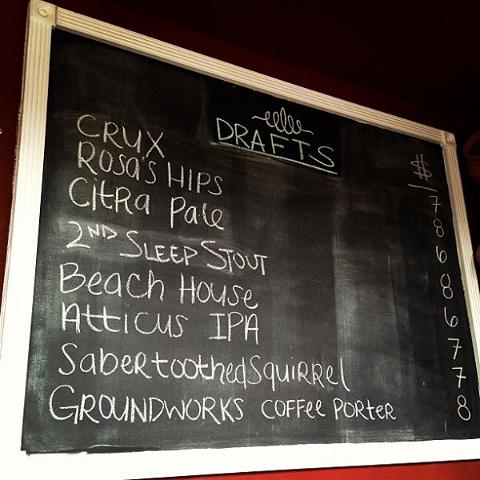 DRAFTS
$
CRUX 7
ROSA'S HIPS 8
CitRA PaLe 6
2ND SLEEP STOUT 8
BeacH House 6
Atticus IPA 7
SabertootHedSquiRReL 7
GROUNDWORKS COFFee PORteR 8